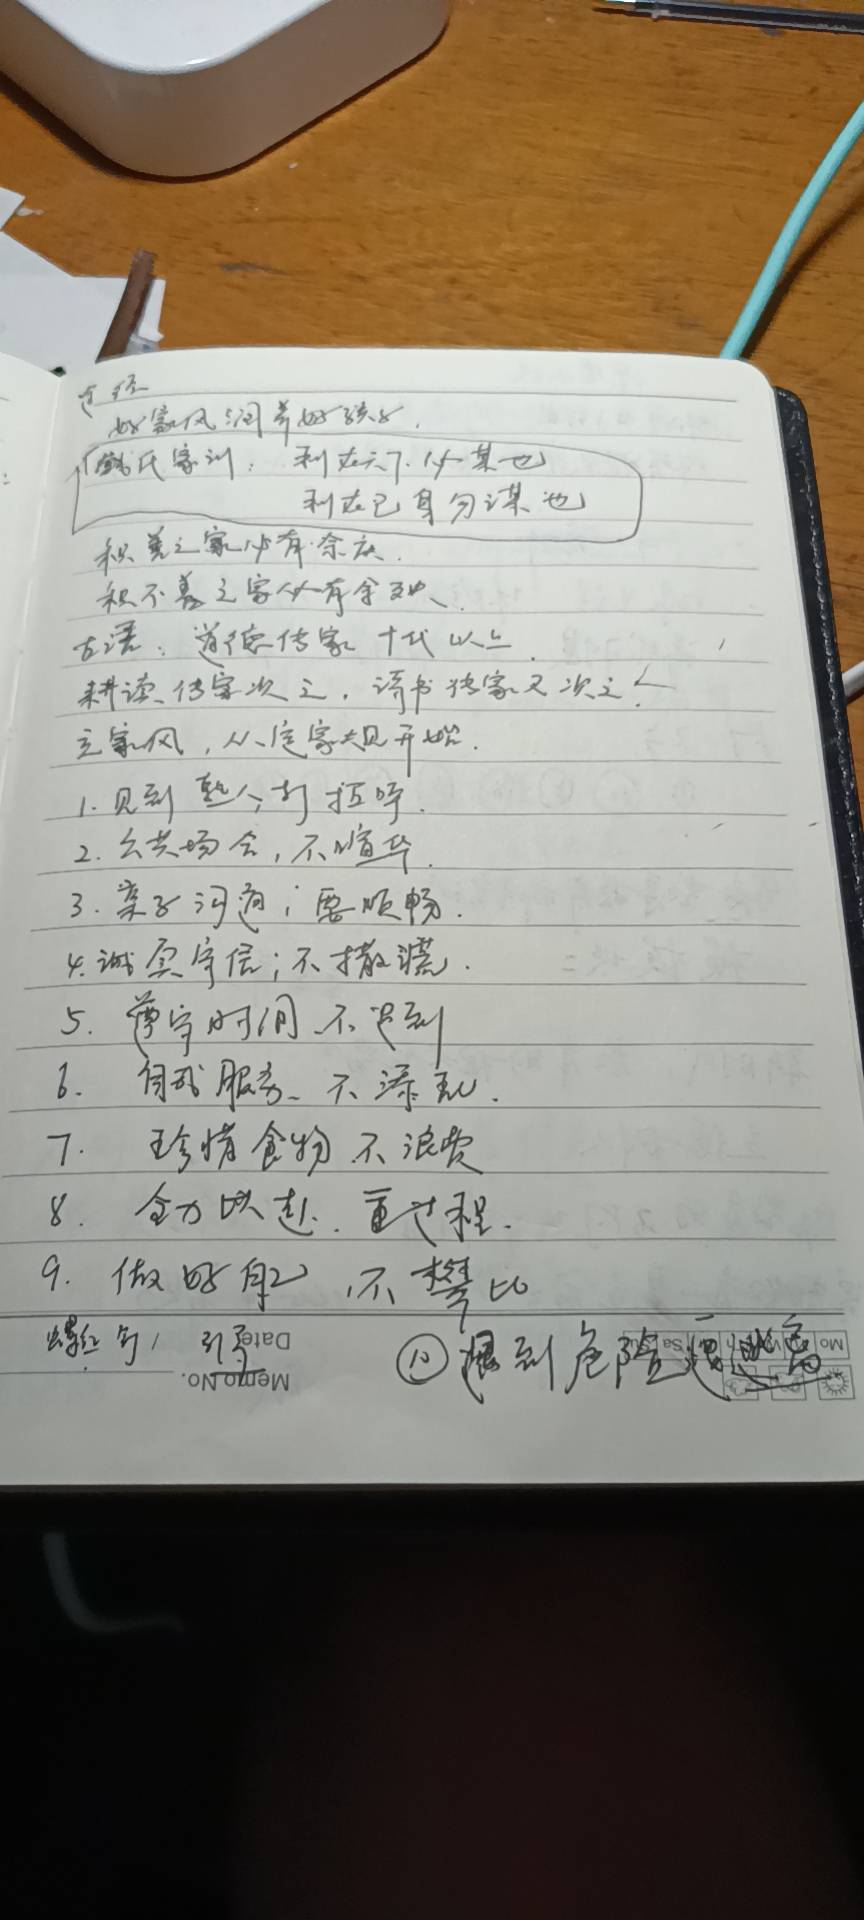 好家风润养好孩子.
钱氏家训: 利在天下必谋也
利在己身勿谋也
积善之家必有余庆.
积不善之家必有余殃.
古语: 道德传家 十代以上.
耕读传家次之, 诗书传家又次之!
立家风, 从定家规开始.
1. 见到熟人, 打招呼.
2. 公共场合, 不喧华.
3. 亲子沟通; 要顺畅.
4. 诚实守信; 不撒谎.
5. 遵守时间 不迟到
6. 自我服务、不添乱.
7. 珍惜食物 不浪费
8. 全力以赴. 重过程.
9. 做好自己, 不攀比
⑩ 遇到危险 逃离
Date
Memo No.
Mo Sa